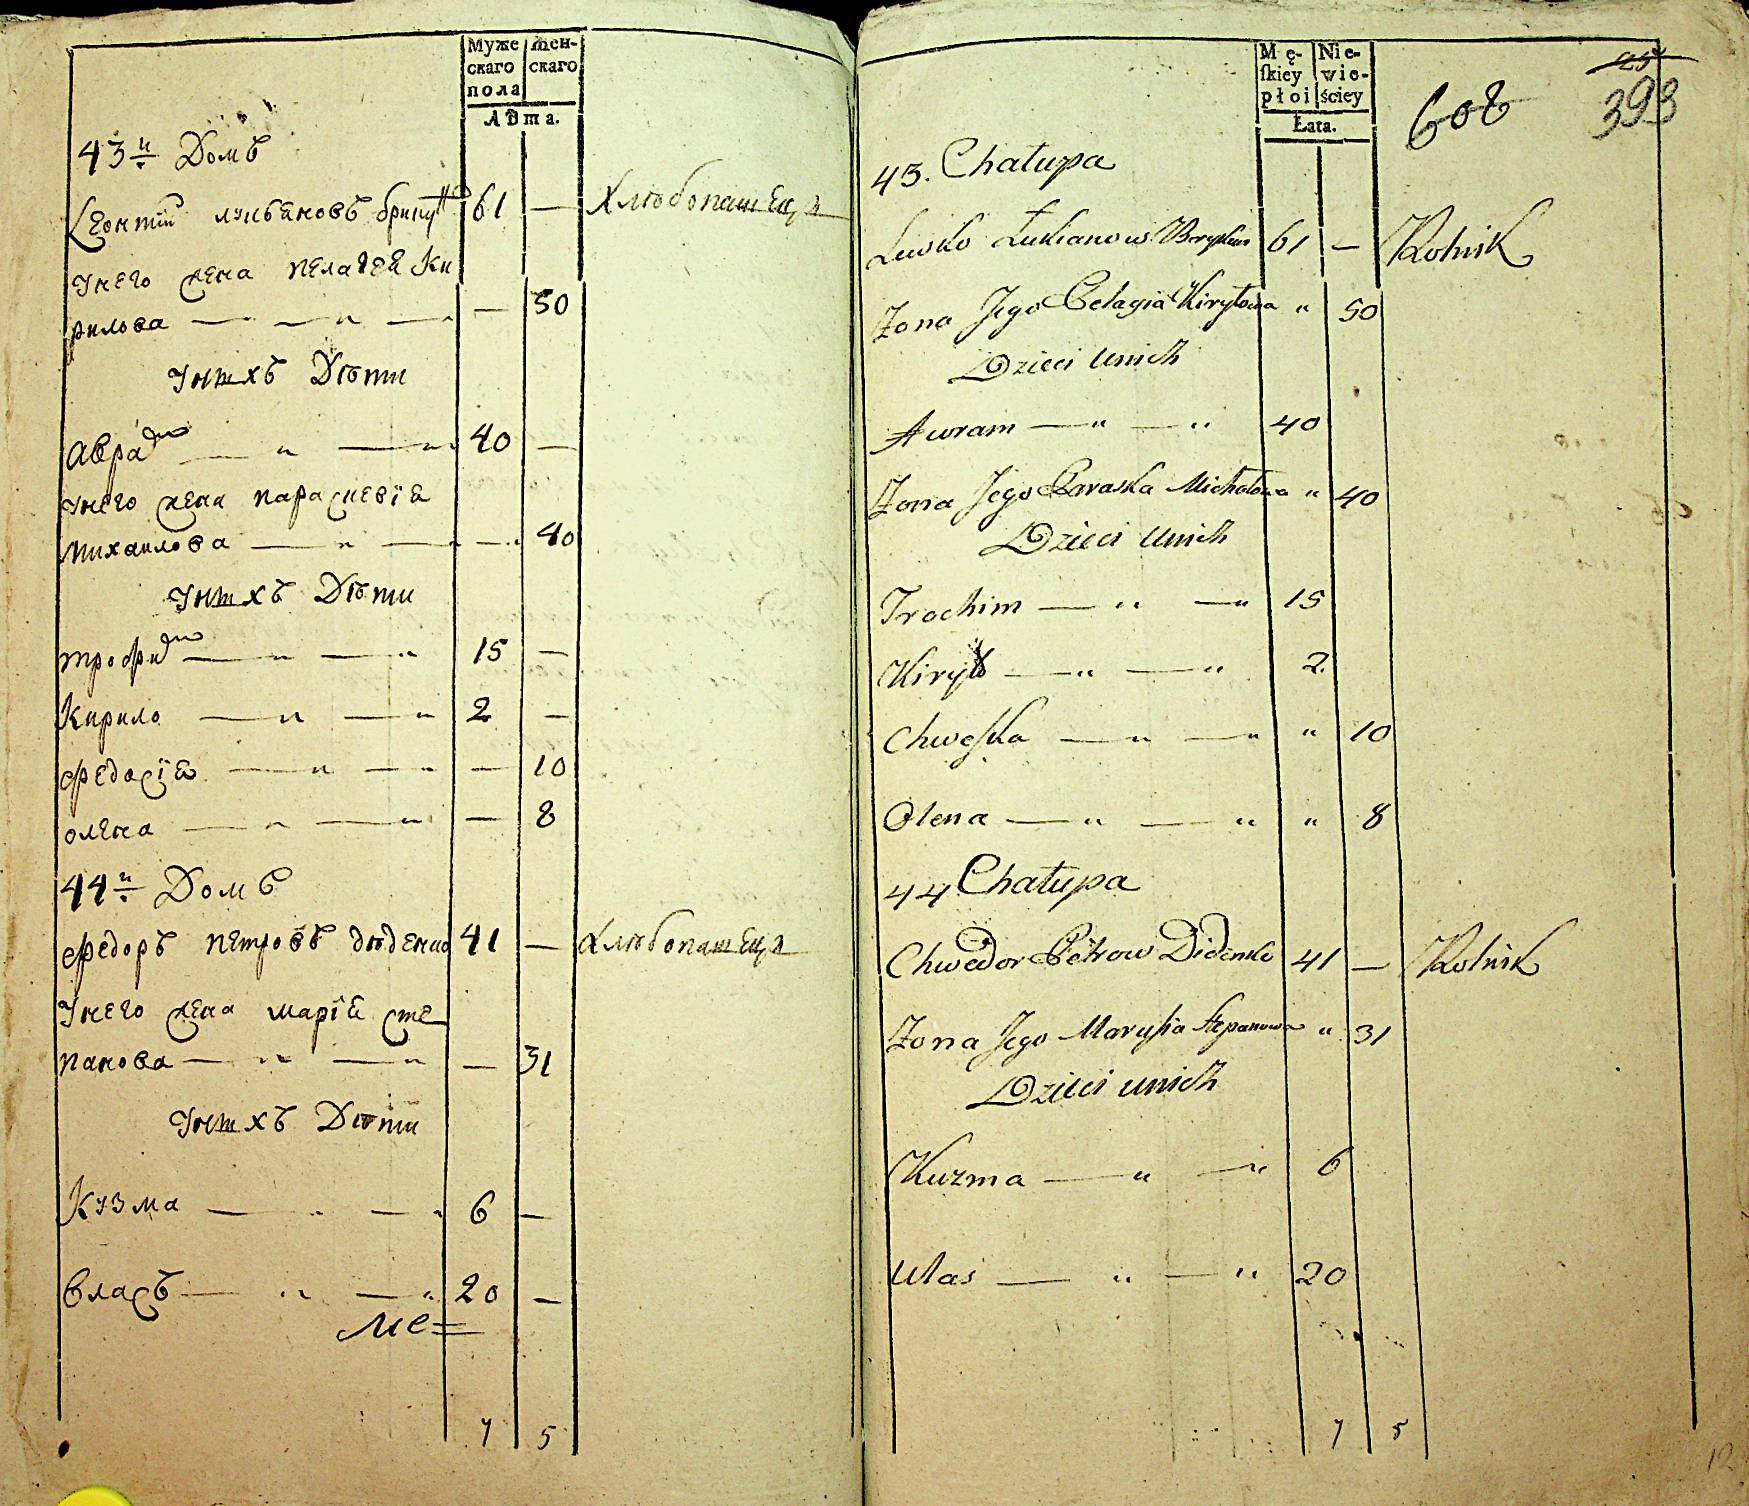 Муже
скаго
пола
женскаго
Лѣта.
43й Домъ
Леонтій Лукьяновъ 61 — Хлюбопашецъ
У него жена Пелагея Ки
рилова — " — — 50
У нихъ Дѣти
Аврамъ — " — " 40 —
У него жена Парасцевія
Михаилова — " — " — 40
У нихъ Дѣти
Трофимъ — " — " 15 —
Кирило — " — " 2 —
Федосія — " — " — 10
Олена — " — " — 8
44й Домъ
Федоръ Петровъ Дѣденко 41 — Хлюбопашецъ
У него жена Марія Сте
панова — " — " — 31
У нихъ Дѣти
Кузма — " — " 6 —
Власъ — " — " 20 —
7 5
Mę-
ſkiey
płoi
Nie-
wie-
ściey
Łata.
608
25
393
43. Chałupa
Lewko Łukianow 61 — Rolnik
Żona Jego Pelagia Kiryłowa " 50
Dzieci Unich
Awram — " — " 40
Żona Jego Paraska Michałowa " 40
Dzieci Unich
Trochim — " — " 15
Kiryło — " — " 2
Chweſka — " — " " 10
Olena — " — " " 8
44 Chałupa
Chwedor Petrow Didenko 41 — Rolnik
Żona Jego Maryſia Stepanowa " 31
Dzieci unich
Kuzma — " — " 6
Ułas — " — " 20
7 5